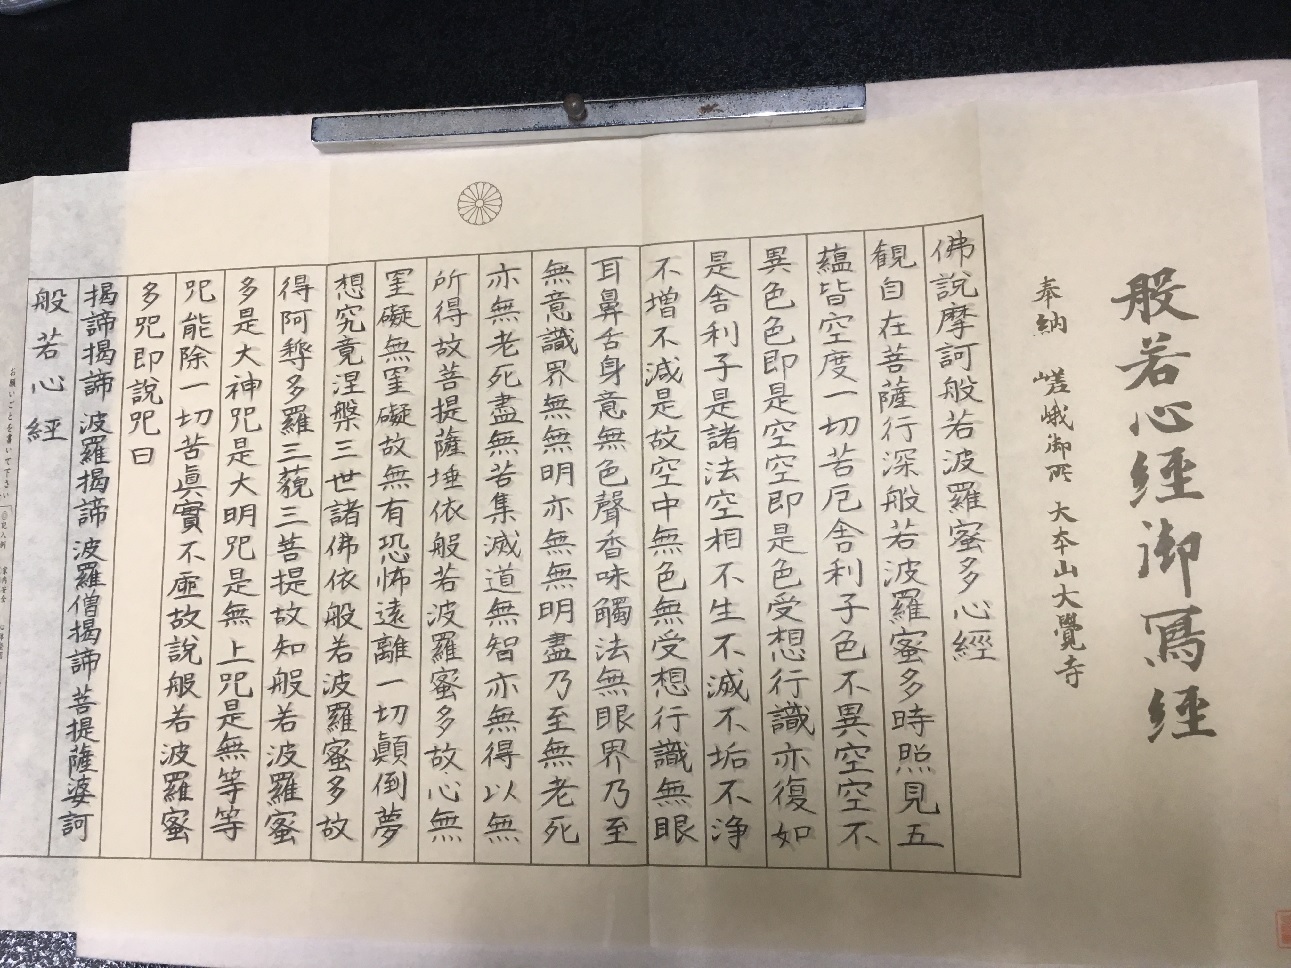 般若心經御寫經
奉納 嵯峨御所 大本山大覺寺
佛說摩訶般若波羅蜜多心經
観自在菩薩行深般若波羅蜜多時照見五
蘊皆空度一切苦厄舎利子色不異空空不
異色色即是空空即是色受想行識亦復如
是舎利子是諸法空相不生不滅不垢不浄
不増不減是故空中無色無受想行識無眼
耳鼻舌身意無色聲香味觸法無眼界乃至
無意識界無無明亦無無明盡乃至無老死
亦無老死盡無苦集滅道無智亦無得以無
所得故菩提薩埵依般若波羅蜜多故心無
罣礙無罣礙故無有恐怖遠離一切顚倒夢
想究竟涅槃三世諸佛依般若波羅蜜多故
得阿耨多羅三藐三菩提故知般若波羅蜜
多是大神呪是大明呪是無上呪是無等等
呪能除一切苦眞實不虛故說般若波羅蜜
多呪即說呪曰
揭諦揭諦 波羅揭諦 波羅僧揭諦 菩提薩婆訶
般若心經
お願いごとを書いて下さい